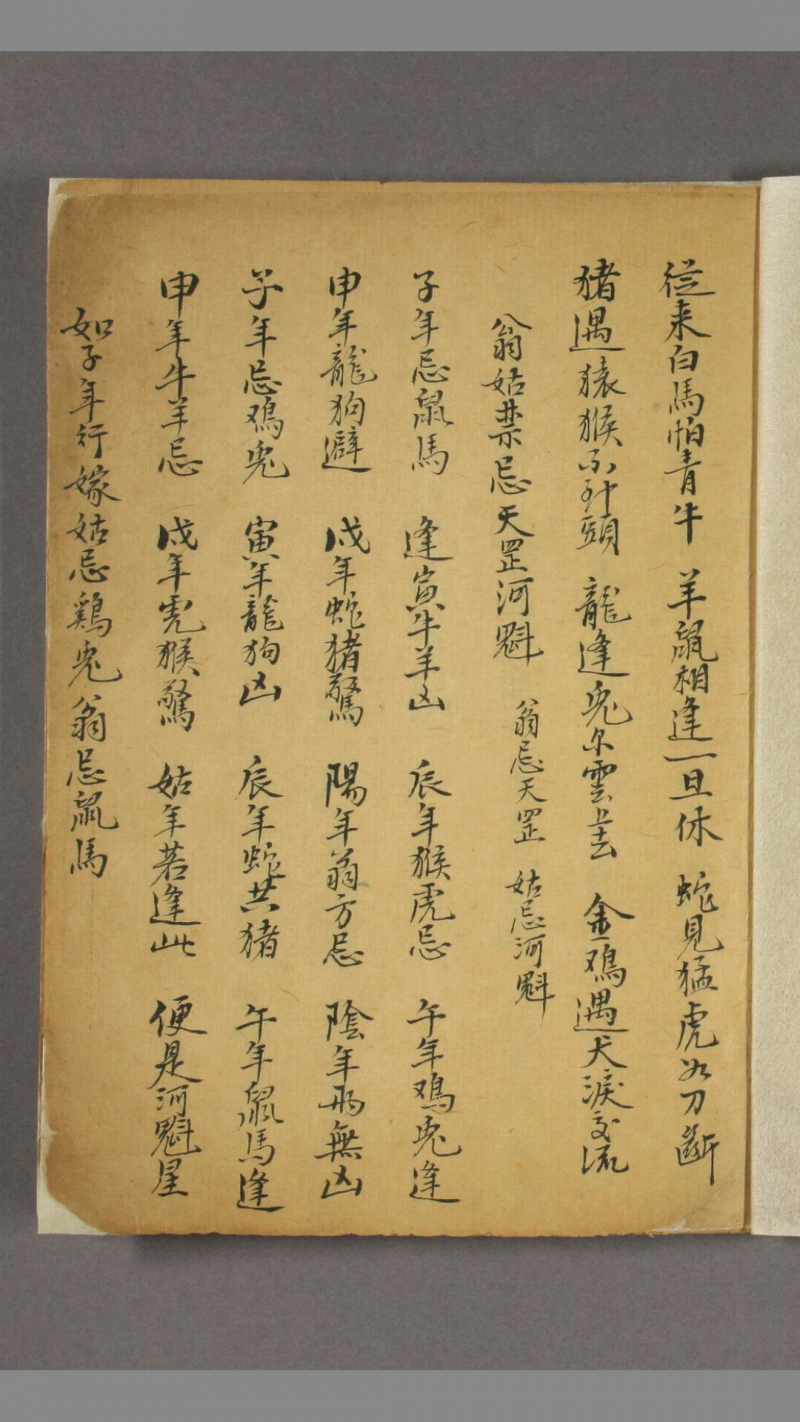 從来白馬怕青牛 羊鼠相逢一旦休 蛇見猛虎如刀斷
猪遇猿猴不到頭 龍逢兎尔雲去 金鳮遇犬淚交流
翁姑禁忌天罡河魁 翁忌天罡 姑忌河魁
子年忌鼠馬 逢寅牛羊凶 辰年猴虎忌 午年鳮兎逢
申年龍狗避 戌年蛇猪驚 陽年翁方忌 陰年両無凶
子年忌鳮兎 寅年龍狗凶 辰年蛇共猪 午年鼠馬逢
申年牛羊忌 戌年虎猴驚 姑年若逢此 便是河魁星
如子年行嫁姑忌鷄兎翁忌鼠馬